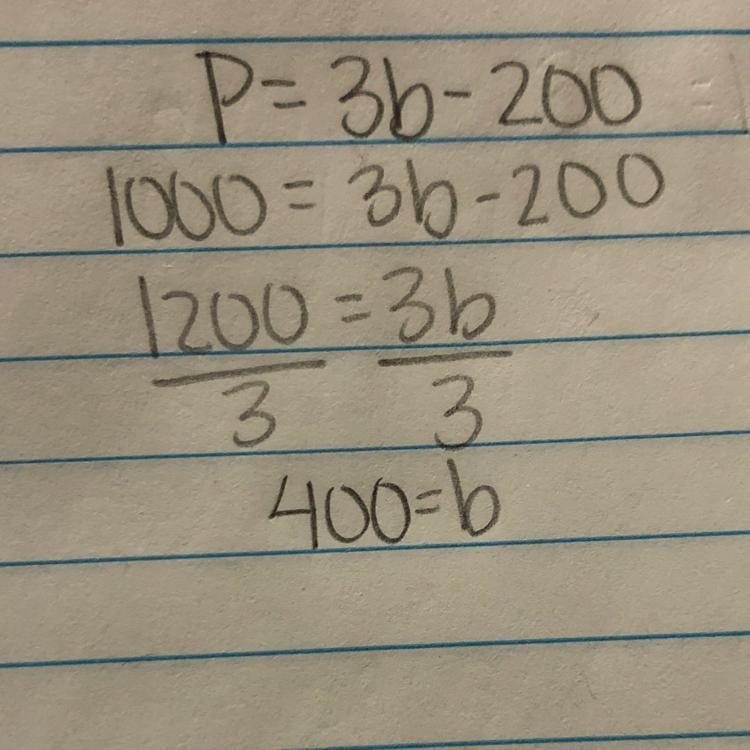 P = 3b - 200
1000 = 3b - 200
1200 = 3b
3 3
400 = b